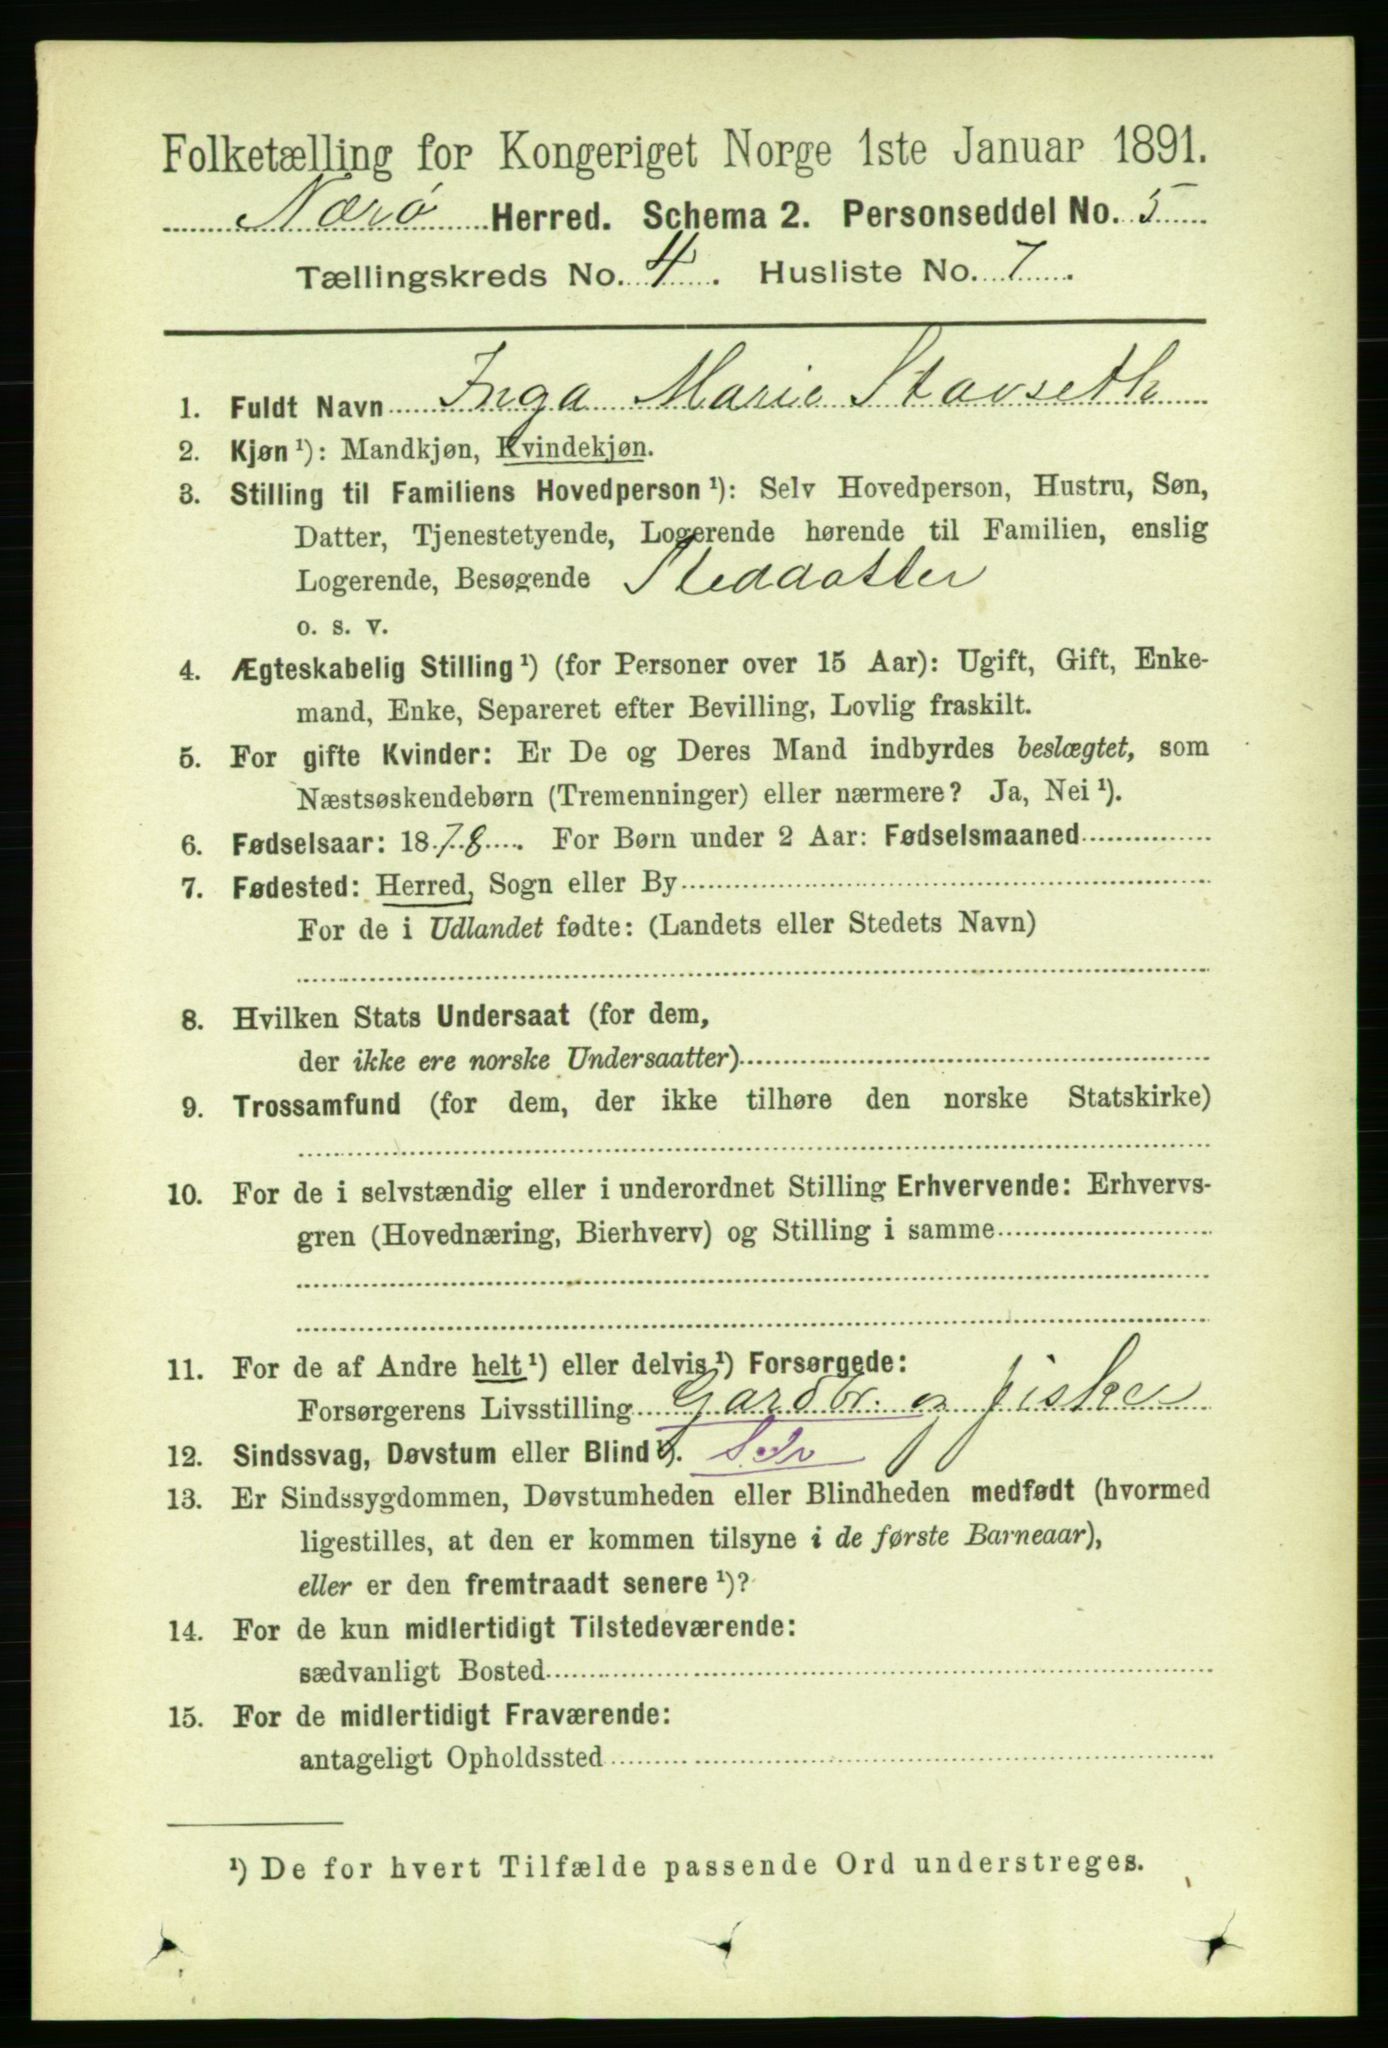 Folketælling for Kongeriget Norge 1ste Januar 1891.
Nærø Herred. Schema 2. Personseddel No. 5
Tællingskreds No. 4. Husliste No. 7.
1. Fuldt Navn Inga Marie Stavseth
2. Kjøn¹): Mandkjøn, Kvindekjøn.
3. Stilling til Familiens Hovedperson¹): Selv Hovedperson, Hustru, Søn,
Datter, Tjenestetyende, Logerende hørende til Familien, enslig
Logerende, Besøgende Steddatter
o. s. v.
4. Ægteskabelig Stilling¹) (for Personer over 15 Aar): Ugift, Gift, Enke-
mand, Enke, Separeret efter Bevilling, Lovlig fraskilt.
5. For gifte Kvinder: Er De og Deres Mand indbyrdes beslægtet, som
Næstsøskendebørn (Tremenninger) eller nærmere? Ja, Nei¹).
6. Fødselsaar: 1878. For Børn under 2 Aar: Fødselsmaaned
7. Fødested: Herred, Sogn eller By
For de i Udlandet fødte: (Landets eller Stedets Navn)
8. Hvilken Stats Undersaat (for dem,
der ikke ere norske Undersaatter)
9. Trossamfund (for dem, der ikke tilhøre den norske Statskirke)
10. For de i selvstændig eller i underordnet Stilling Erhvervende: Erhvervs-
gren (Hovednæring, Bierhverv) og Stilling i samme
11. For de af Andre helt¹) eller delvis¹) Forsørgede:
Forsørgerens Livsstilling Gardbr. og fisker
12. Sindssvag, Døvstum eller Blind¹).
13. Er Sindssygdommen, Døvstumheden eller Blindheden medfødt (hvormed
ligestilles, at den er kommen tilsyne i de første Barneaar),
eller er den fremtraadt senere¹)?
14. For de kun midlertidigt Tilstedeværende:
sædvanligt Bosted
15. For de midlertidigt Fraværende:
antageligt Opholdssted
¹) De for hvert Tilfælde passende Ord understreges.